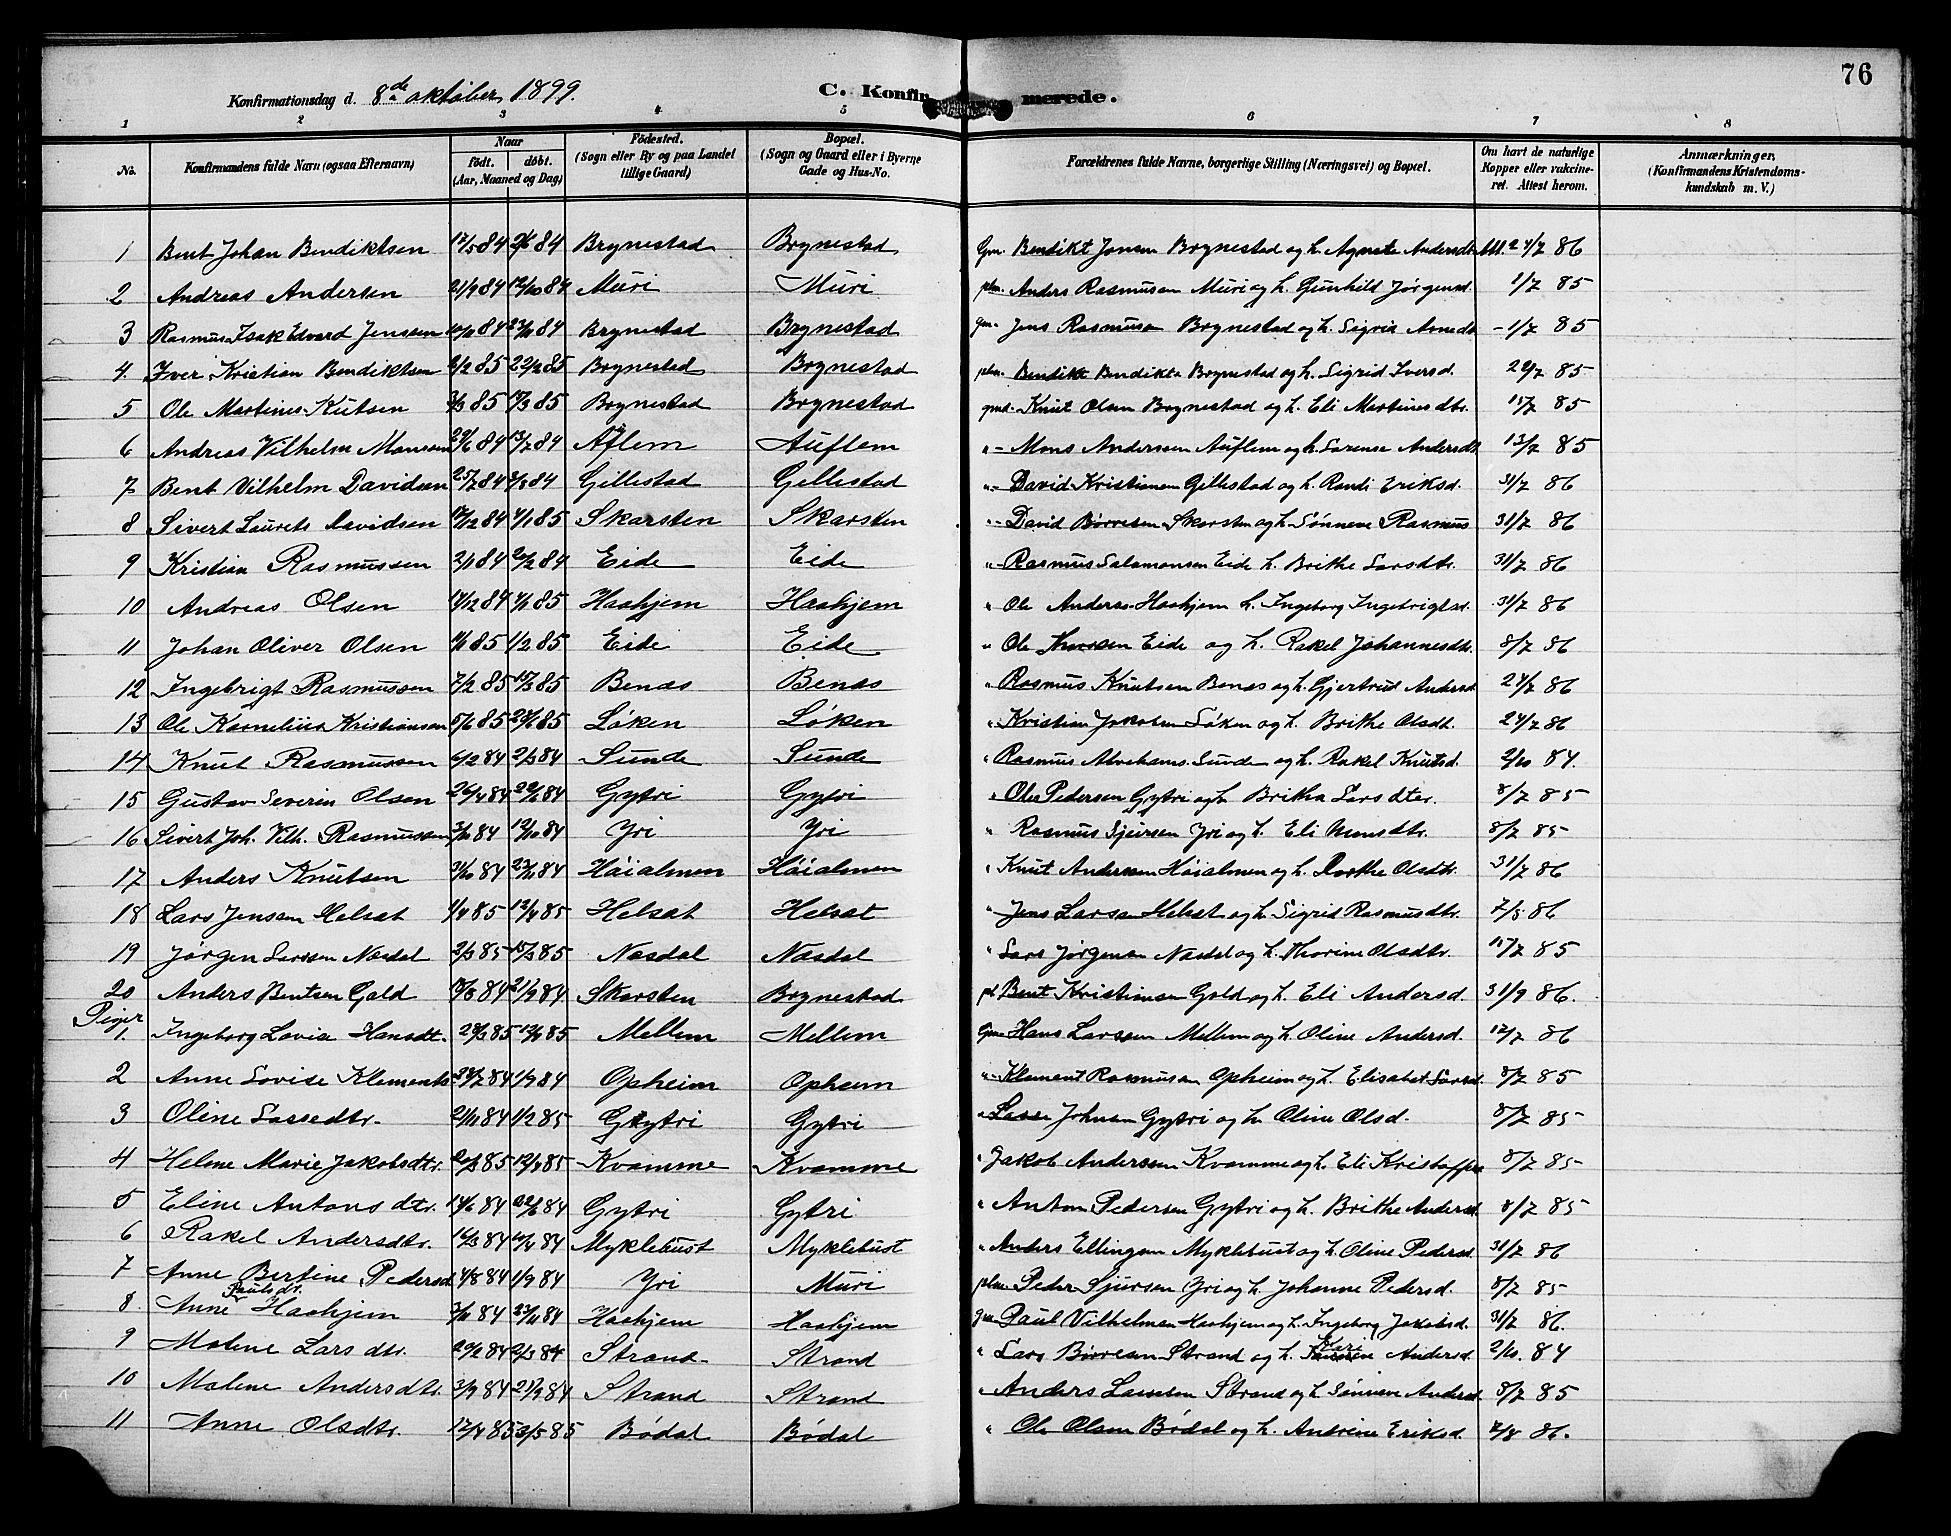 76
Konfirmationsdag d. 8de oktober 1899.
C. Konfirmerede.
1 2 3 4 5 6 7 8
No. Konfirmandens fulde Navn (ogsaa Efternavn) Naar født. døbt. (Aar, Maaned og Dag) Fødested. (Sogn eller By og paa Landet tillige Gaard) Bopæl. (Sogn og Gaard eller i Byerne Gade og Hus-No. Forældrenes fulde Navne, borgerlige Stilling (Næringsvei) og Bopæl. Om havt de naturlige Kopper eller vakcineret. Attest herom. Anmærkninger. (Konfirmandens Kristendomskundskab m. V.)
1 Bent Johan Bendiktsen 17/5 84 84 Brynestad Brynestad Gm. Bendikt Jonsen Brynestad og h. Agnete Andersdtr. 24/7 86
2 Andreas Andersen 21/9 84 12/10 84 Muri Muri plm. Anders Rasmusen Muri og h. Gunhild Jørgensd. 1/7 85
3 Rasmus Isak Edvard Jenssen 84 23/11 84 Brynestad Brynestad Gm. Jens Rasmusen Brynestad og h. Sigrid Arnedt. 1/7 85
4. Iver Kristian Bendiktsen 85 22/2 85 Brynestad Brynestad plm. Bendikt Bendikts Brynestad og h. Sigrid Iversd. 85
5 Ole Martinus Knutsen 3/3 85 85 Brynestad Brynestad gmd. Knut Olsen Brynestad og h. Eli Martinesdtr. 15/7 85
6 Andreas Vilhelm Monsen 29/6 84 13/7 84 Aflem Auflem " Mons Anderssen Auflem og h. Sorense Andersdt. 13/7 85
7 Bent Vilhelm Davidsen 25/7 84 3/8 84 Gillestad Gillestad " David Kristiansen Gillestad og h. Randi Eriksd. 31/7 86
8 Sivert Laurits Davidsen 17/12 84 4/1 85 Skarsten Skarsten " David Børresen Skarsten og h. Sønneve Rasmus 31/7 86
9 Kristian Rasmussen 2/1 84 84 Eide Eide " Rasmus Salamonsen Eide h. Brithe Larsdtr. 31/7 86
10 Andreas Olsen 17/12 84 85 Haahjem Haahjem " Ole Anders. Haahjem h. Ingeborg Ingebrigtsd. 31/7 86
11 Johan Oliver Olsen 85 1/2 85 Eide Eide " Ole Eide og h. Rakel Johannesdtr. 8/7 86
12 Ingebrigt Rasmussen 7/2 85 15/3 85 Benæs Benæs " Rasmus Knutsen Benæs og h. Gjertrud Andersd. 24/7 86
13 Ole Kornelius Kristiansen 85 85 Løken Løken " Kristian Jakobsen Løken og h. Brithe Olsdt. 24/7 86
14 Knut Rasmussen 6/2 84 2/3 84 Sunde Sunde " Rasmus Abrahams. Sunde og h. Rakel Knutsd. 2/10 84.
15 Gustav Severin Olsen 26/4 84 84 Gytri Gytri " Ole Pedersen Gytri og h. Britha Larsdtr. 8/7 85
16 Sivert Joh. Vilh. Rasmussen 84 12/10 84 Yri Yri " Rasmus Sjursen Yri og h. Eli Monsdtr. 8/7 85
17 Anders Knutsen 31/10 84 23/11 84 Høialmen Høialmen " Knut Anderssen Høialmen og h. Dorthe Olsdtr. 31/7 86
18 Lars Jensen Helsæt 1/4 85 12/4 85 Helsæt Helsæt " Jens Larsen Helsæt og h. Sigrid Rasmusdtr. 7/8 86
19 Jørgen Larssen Næsdal 2/3 85 15/3 85 Næsdal Næsdal " Lars Jørgensen Næsdal og h. Thorine Olsdtr. 15/7 85
20 Anders Bentsen Gald 84 21/9 84 Skarsten Brynestad pl. Bent Kristiansen Gald og h. Eli Andersd. 31/7 86.
Piger
1. Ingeborg Lovise Hansdt. 28/3 85 12/4 85 Mellem Mellem Gm. Hans Larssen Mellem og h. Oline Andersd. 12/7 86
2 Anne Lovise Klements 84 1/9 84 Opheim Opheim " Klement Rasmussen Opheim og h. Elisabet Larsd. 8/7 85
3 Oline Lassedtr. 21/11 84 1/2 85 Gytri Gytri " Lasse Johnsen Gytri og h. Oline Olsd. 8/7 85
4 Helene Marie Jakobsdtr. 85 12/4 85 Kvamme Kvamme " Jakob Anderssen Kvamme og h. Eli Kristoffers 8/7 85
5 Eline Antonsdtr. 14/6 84 22/6 84 Gytri Gytri " Anton Pedersen Gytri og h. Brithe Andersd. 8/7 85
6 Rakel Andersdtr. 84 84 Myklebust Myklebust " Anders Ellingsen Myklebust og h. Oline Pedersd. 31/7 86
7 Anne Bertine Pedersd. 4/8 84 1/9 84 Yri Muri plm. Peder Sjursen Yri og h. Johanne Pedersd. 8/7 85
8. Anne Paulsdt. Haahjem 3/11 84 23/11 84 Haahjem Haahjem Gm. Paul Vilhelmsen Haahjem og h. Ingeborg Jakobsd. 31/7 86.
9 Malene Larsdtr. 84 2/3 84 Strand Strand " Lars Børresen Strand og h. Kari Andersd. 2/10. 84
10 Malene Andersdtr. 3/9 84 21/9 84 Strand Strand " Anders Lassesen Strand og h. Sønneve Andersd. 8/7 85
11 Anne Olsdtr. 17/4 85 3/5 85 Bødal Bødal " Ole Olsen Bødal og h. Andrine Eriksd. 7/8 86.